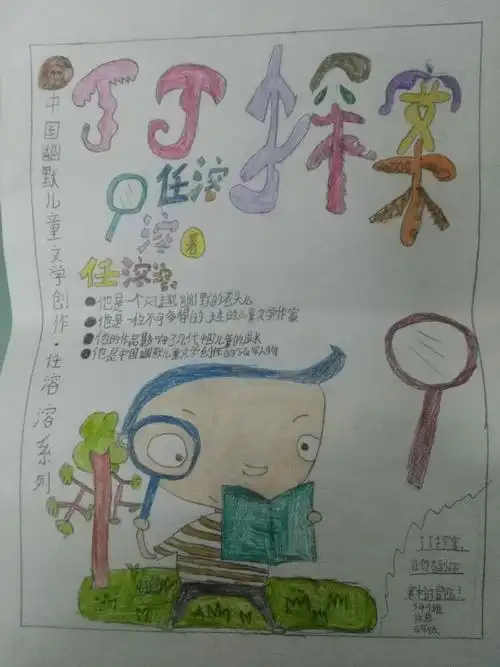 丁丁探案
中国幽默儿童文学创作·任溶溶系列
任溶
溶
著
任溶溶
他是一个风趣幽默的老头儿
他是一位不可多得的 的儿童文学作家
他的作品影响了几代中国儿童的成长
他是中国幽默儿童文学创作的 人物
丁丁探案,
案中的冒险!